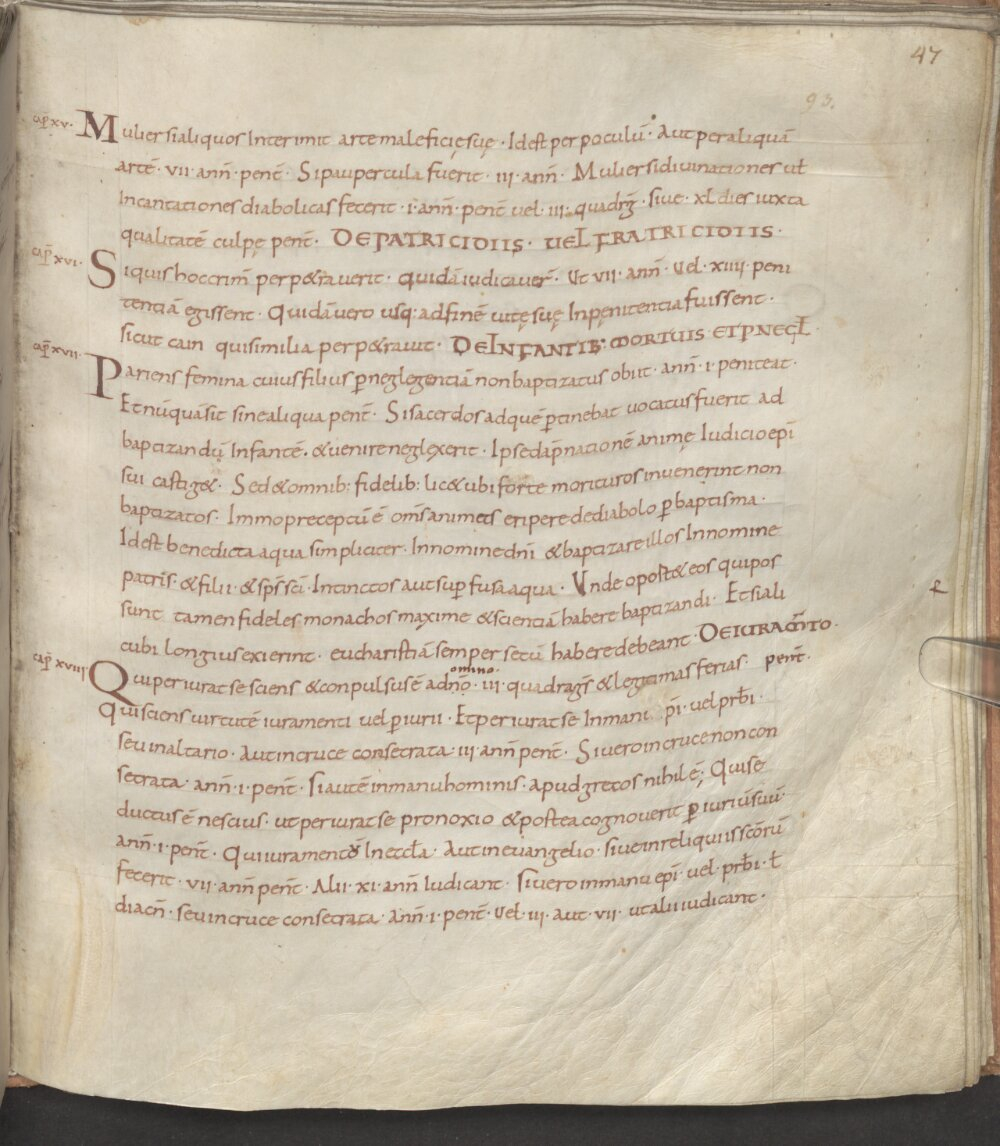 47
93.
cap̄ xv· Mulier si aliquos Interimit arte maleficię suę · Id est per poculū · Aut per aliquā
artē · vii · ann̄ · pent̄ · Si paupercula fuerit · iii · ann̄ · Mulier si divinationes ut̄
Incantationes diabolicas fecerit · i · ann̄ · pent̄ vel · iii · quadrḡ · sive · xl dies iuxta
qualitatē culpę penit̄ · DE PATRICIDIIS · VEL FRATRICIDIIS ·
cap̄ xvi· Siquis hoc crim̄ perp&raverit · quidā iudicaver̄ · Ut vii · ann̄ · vel · xiiii · peni
tenciā egissent · Quidā vero usq: ad finē vitę suę In pęnitencia fuissent ·
sicut cain qui similia perp&ravit · DE INFANTIB: MORTUIS ET P NEGL̄ ·
cap̄ xvii· Pariens femina cuius filius p̄ neglegentiā non baptizatus obiit · ann̄ · i · peniteat ·
Et nūquā sit sine aliqua penit̄ · Si sacerdos ad quē p̄tinebat vocatus fuerit ad
baptizandū Infantē · & venire neglexerit · Ipse dāpnationē animę Iudicio ep̄i
sui castig& · Sed & omnib: fidelib: lic& ubi forte morituros invenerint non
baptizatos · Immo preceptū ē om̄s animas eripere de diabolo p̄ baptisma ·
Id est benedicta aqua simpliciter · In nomine dn̄i & baptizare illos In nomine
patris̄ · & filii · & sp̄s sc̄i · Intinctos aut sup̄fusa aqua · Unde oport& eos qui pos
sunt tamen fideles monachos maxime & scienciā habere baptizandi · Et si ali
cubi longius exierint · eucharistiā semper secū habere debeant · DE IURAM̄TO ·
cap̄ xviii Qui periurat se sciens & conpulsus ē a dn̄o · omino · iii · quadrag̅s & legitimas ferias · penit̄ ·
Qui sciens virtutē iuramenti vel p̄iurii · Et periurat se In manu pi · vel prb̄i ·
seu in altario · Aut in cruce consecrata · iii · ann̄ penit̄ · Si vero in cruce non con
secrata · ann̄ · i · penit̄ · Si autē in manu hominis · apud grecos nihil ē; Qui se
ductus ē nescius · ut periurat se pro noxio & postea cognoverit p̄iuriū suū ·
ann̄ · i · penit̄ · Qui iuramentō In eccl̄a · Aut in evangelio · sive in reliquiis sc̄orū
fecerit · vii · ann̄ penit̄ · Alii · xi · ann̄ Iudicant · Si vero in manu ep̄i · vel · prb̄i · ł
diacn̄ · seu in cruce consecrata · Ann̄ · i · penit̄ · vel · iii · aut · vii · ut alii iudicant ·